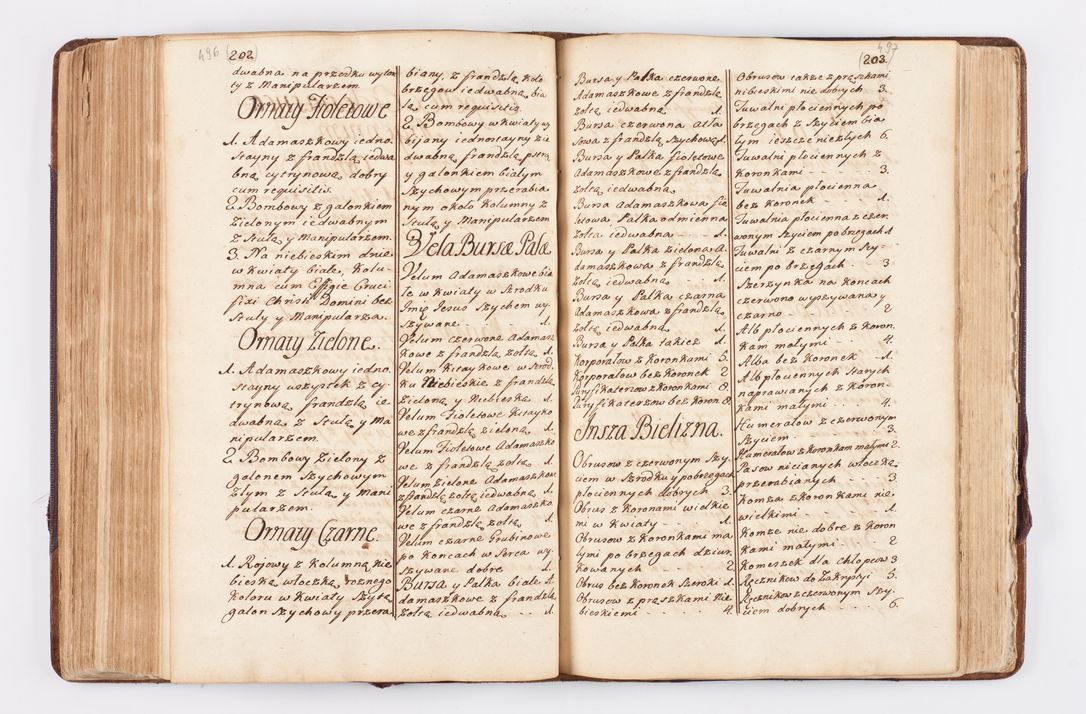 496 (202)
dwabna na przodku wytar
ty z Manipularzem
Ornaty Fioletowe
1. Adamaszkowy iedno.
stayny z frandzlą iedwa
bną cytrynową dobry
cum requisitis.
2. Bombowy z galonkiem
zielonym iedwabnym
z Stułą y Manipularzem.
3. Na niebieskim dnie
w kwiaty białe, Kolu-
mna cum Effigie Cruci
fixi Christi Domini bez
Stuły y Manipularza.
Ornaty Zielone.
1. Adamaszkowy iedno.
stayny wszystek z cy-
trynową frandzlą ie
dwabną z Stułą y Ma
nipularzem.
2. Bombowy Zielony z
galonem Szychowym
złym z Stułą y Mani
pularzem.
Ornaty Czarne.
1. Kojowy z Kolumną nie
bieską włoczką rożnego
Koloru w Kwiaty szytą
galon Szychowy przera
biany, z frandzlą koło
brzegow iedwabną bia
łą cum requisitis.
2. Bombowy w Kwiaty wy
biiany iednostayny z ie
dwabną frandzlą pstrą
y galonkiem białym
Szychowym przerabia
nym około Kolumny z
Stułą y Manipularzem
Vela Bursæ Palæ
Velum Adamaszkowe bia
łe w kwiaty w Srodku
Imię Jesus Szychem wy
szywane 1.
Velum czerwone Adamasz
kowe z frandzlą żołtą 1.
Velum Kitaykowe w Srod
ku Niebieskie z frandzlą
Zieloną y Niebieską 1.
Velum Fioletowe Kitayko
we z frandzlą zieloną 1.
Velum Fioletowe Adamaszko
we z frandzlą żołtą 1.
Velum Zielone Adamaszkowe
z frandzlą żołtą iedwabną 1.
Velum czarne Adamaszko
we z frandzlą żołtą 1.
Velum czarne Grubinowe
po Koncach w Serca wy
szywane dobre 1.
Bursa y Palka białe A
damaszkowe z frandzlą
żołtą iedwabną 1.
497
(203)
Bursa y Palka czerwone
Adamaszkowe z frandzlą
żołtą iedwabną 1.
Bursa czerwona Atła
sowa z frandzlą Szychową 1.
Bursa y Palka Fioletowe
Adamaszkowe z frandzlą
żołtą iedwabną.
Bursa Adamaszkowa fio
letowa Palka odmienna
żołta iedwabna 1.
Bursa y Palka zielona A
damaszkowa z frandzlą
żołtą iedwabną 1.
Bursa y Palka czarna
Adamaszkowa z frandzlą
żołtą iedwabną 1.
Bursa y Palka takież 1.
Korporałow z Koronkami 5.
Korporałow bez Koronek 2
Puryfikaterzow z Koronkami 8.
Puryfikaterzow bez Koron. 8
Insza Bielizna.
Obrusow z czerwonym Szy.
ciem w Srodku y po brzegach
płociennych dobrych 3.
Obrus z Koronami wielkie
mi w Kwiaty 1.
Obrusow z Koronkami ma
łymi po brzegach dziur
kowanych 2.
Obrus bez Koronek Szeroki 1.
Obrusow z prązkami nie
bieskiemi 4.
Obrusow także z prążkami
niebieskimi nie dobrych 3.
Tuwalni płociennych po
brzegach z Szyciem bia
łym ieszcze niezłych 6.
Tuwalni płociennych z
Koronkami 3.
Tuwalnia płocienna
bez Koronek 1.
Tuwalnia płocienna z czer.
wonym Szyciem po brzegach 1
Tuwalni z czarnym Szy-
ciem po brzegach 3
Szerzynka na Koncach
czerwono wyszywana y
czarno 2
Alb płociennych z Koron.
kami małymi 4.
Alba bez Koronek 1.
Alb płociennych Starych
naprawianych z Koron-
kami małymi 4.
Humerałow z czerwonym
Szyciem 3.
Humerałow z Koronkami małymi 2.
Pasow nicianych włoczką
przerabianych 3.
Komża z Koronkami nie
wielkimi 1.
Komże nie dobre z Koron
kami małymi 2
Komeszek dla Chłopcow 3
Ręcznikow do Zakrystyi 5.
Ręcznikow z czerwonym Szy.
ciem dobrych 6.